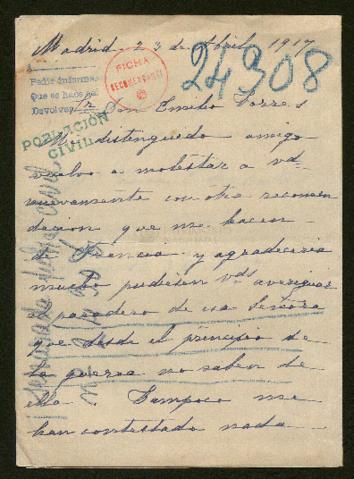 Madrid 23 de Abril 1917
FICHA
24308
Pedir informes
Que se haga
Devolver
Sr Don Emilio Torres
POBLACIÓN
CIVIL
Mi distinguido amigo
vuelvo a molestar a vd
nuevamente con otra recomen
dacion que me hacen
de Francia y agradeceria
mucho pudiesen vds averiguar
el paradero de esa Señora
que desde el principio de
la guerra no saben de
ella. Tampoco me
han contestado nada